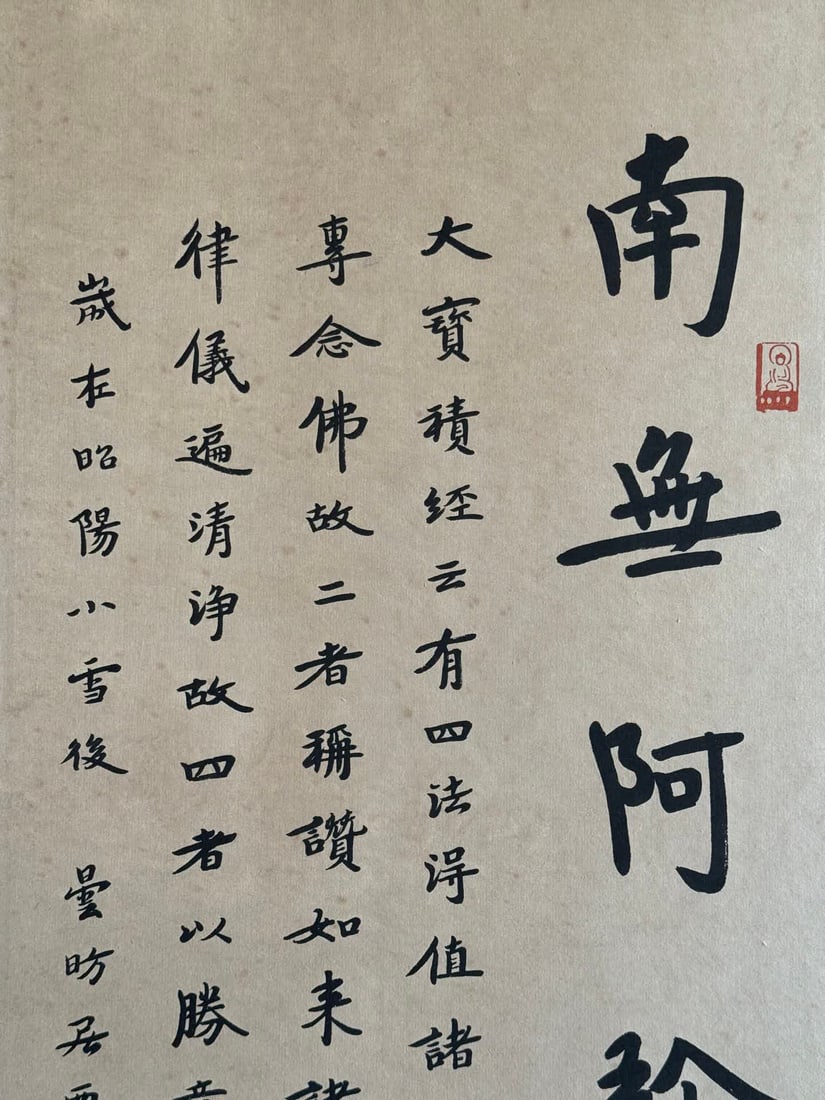 南無阿
大寶積經云有四法得值諸
專念佛故二者稱讚如来
律儀遍清淨故四者以勝
歲在昭陽小雪後 曇昉居